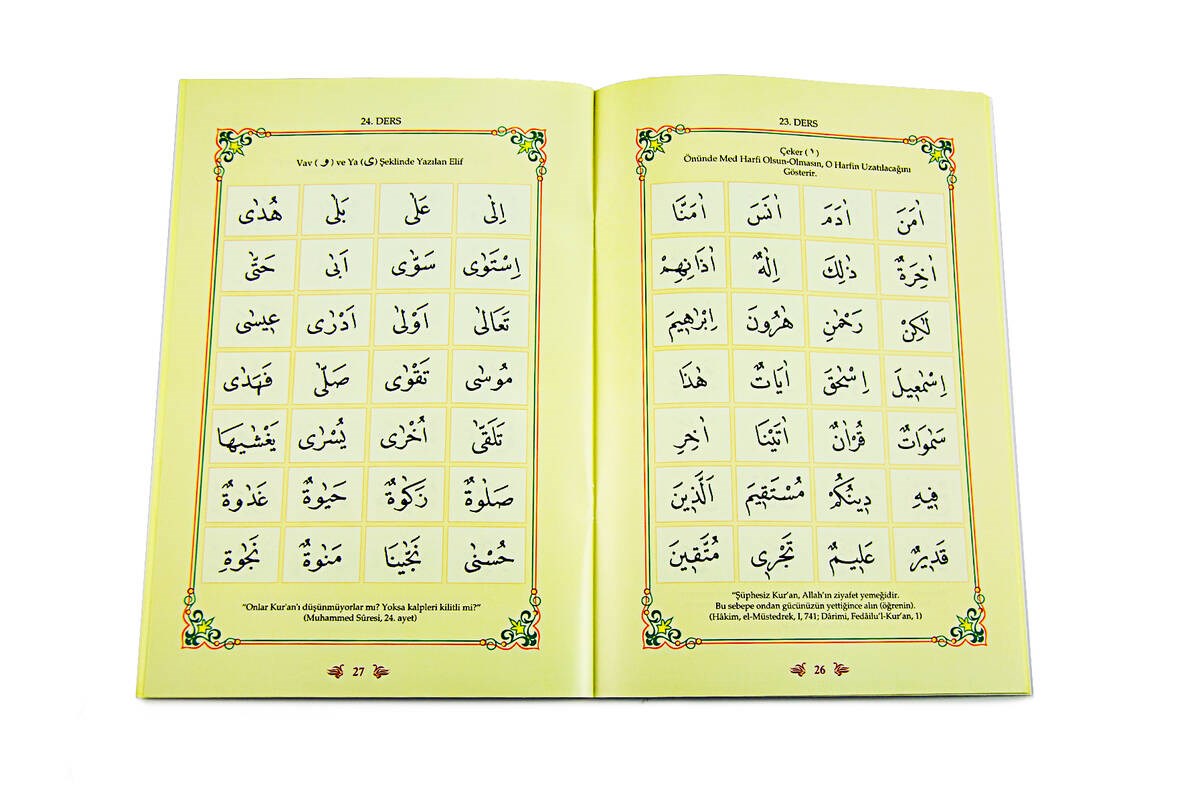 23. DERS
Çeker ( ٰ )
Önünde Med Harfi Olsun-Olmasın, O Harfin Uzatılacağını
Gösterir.
اٰمَنَ اٰدَمَ اٰنَسَ اٰمَنَّا
اٰخِرَةٌ ذٰلِكَ اِلٰهٌ اٰذَانِهِمْ
لٰكِنْ رَحْمٰنِ هٰرُونَ اِبْرٰهٖيمَ
اِسْمٰعٖيلَ اِسْحٰقَ اٰيَاتٌ هٰذَا
سَمٰوَاتٌ قُرْاٰنٌ اٰتَيْنَا اٰخِرِ
فٖيهِ دٖينُكُمْ مُسْتَقٖيمَ اَلَّذٖينَ
قَدٖيرٌ عَلٖيمٌ تَجْرٖى مُتَّقٖينَ
"Şüphesiz Kur'an, Allah'ın ziyafet yemeğidir.
Bu sebepe ondan gücünüzün yettiğince alın (öğrenin).
(Hâkim, el-Müstedrek, I, 741; Dârimi, Fedâilu'l-Kur'an, 1)
26
24. DERS
Vav ( و ) ve Ya (ى) Şeklinde Yazılan Elif
اِلٰى عَلٰى بَلٰى هُدٰى
اِسْتَوٰى سَوّٰى اَبٰى حَتّٰى
تَعَالٰى اَوْلٰى اَدْرٰى عٖيسٰى
مُوسٰى تَقْوٰى صَلّٰى فَهَدٰى
تَلَقّٰى اُخْرٰى يُسْرٰى يَغْشٰيهَا
صَلٰوةٌ زَكٰوةٌ حَيٰوةٌ غَدٰوةٌ
حُسْنٰى نَجّٰينَا مَنٰوةٌ نَجٰوةِ
"Onlar Kur'an'ı düşünmüyorlar mı? Yoksa kalpleri kilitli mi?"
(Muhammed Sûresi, 24. ayet)
27